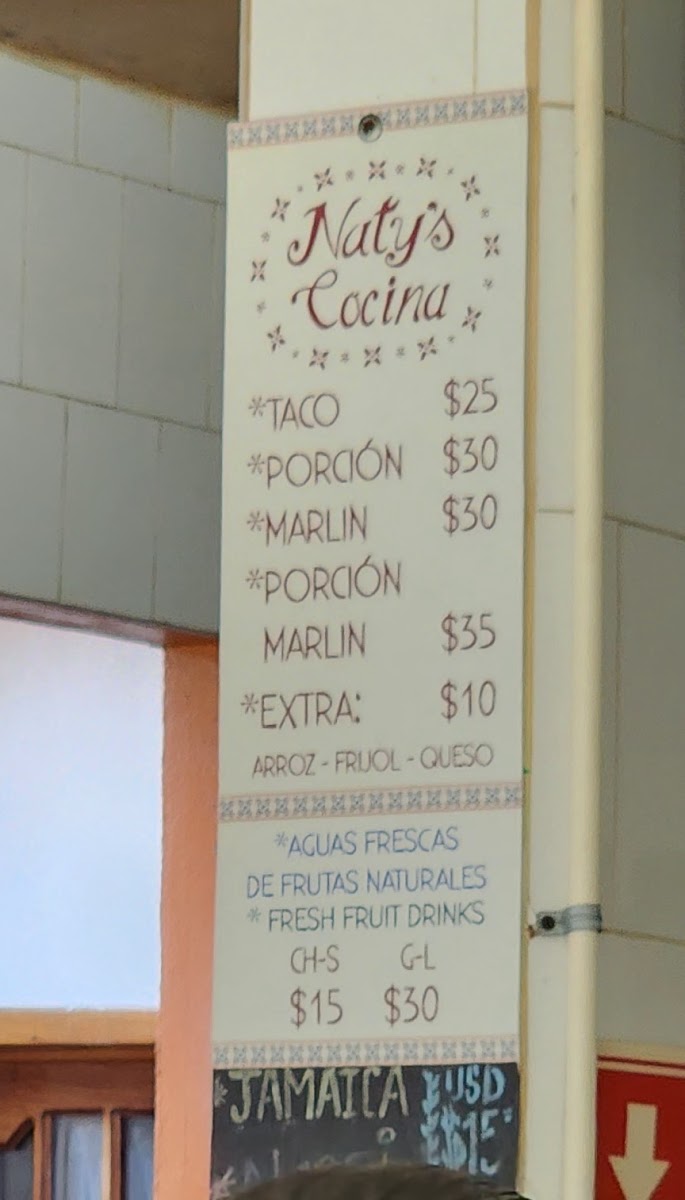 Naty's
Cocina
*TACO $25
*PORCIÓN $30
*MARLIN $30
*PORCIÓN
MARLIN $35
*EXTRA: $10
ARROZ - FRIJOL - QUESO
*AGUAS FRESCAS
DE FRUTAS NATURALES
* FRESH FRUIT DRINKS
CH-S G-L
$15 $30
*JAMAICA USD
$15